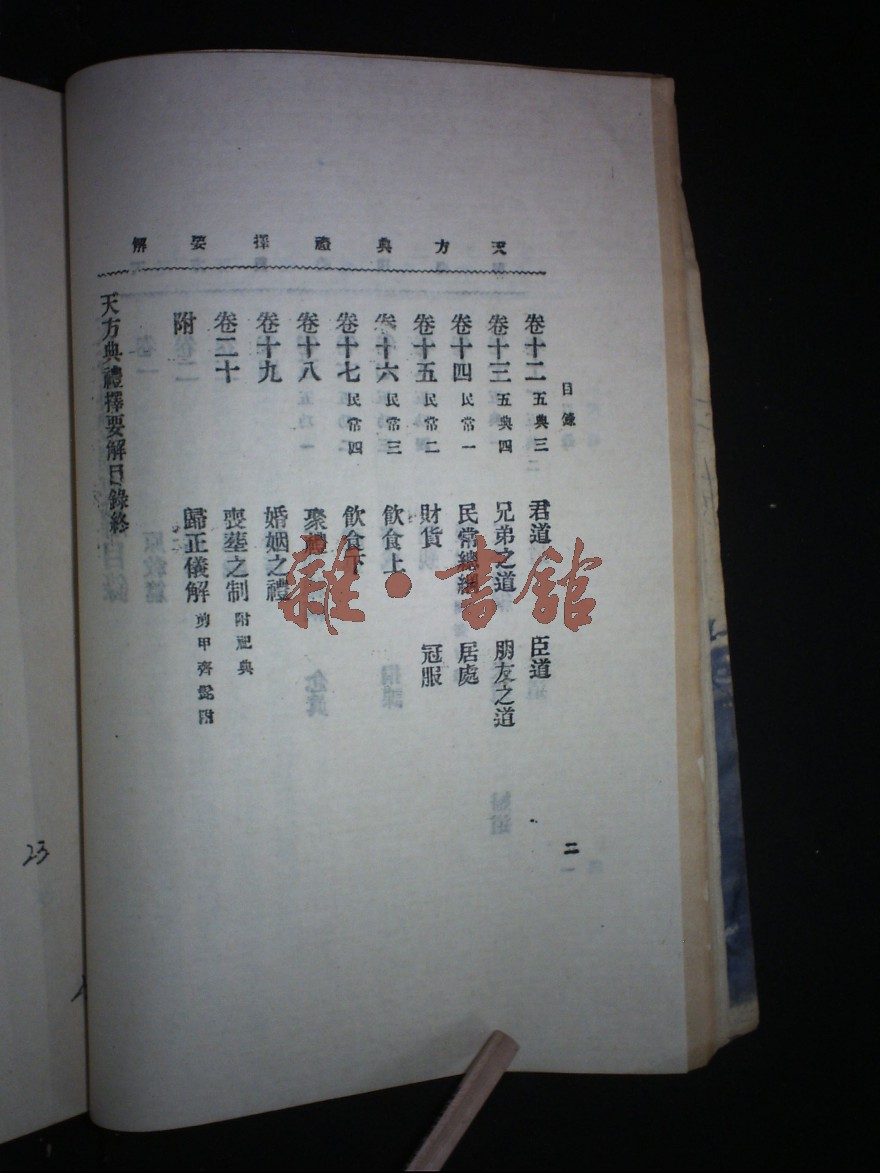 天方典禮擇要解
目錄
二
卷十二 五典三 君道 臣道
卷十三 五典四 兄弟之道 朋友之道
卷十四 民常一 民常總綱 居處
卷十五 民常二 財貨 冠服
卷十六 民常三 飲食上
卷十七 民常四 飲食下
卷十八 聚禮
卷十九 婚姻之禮
卷二十 喪塟之制 附祀典
附 歸正儀解 剪甲齊髭附
天方典禮擇要解目錄終
雜·書館
23